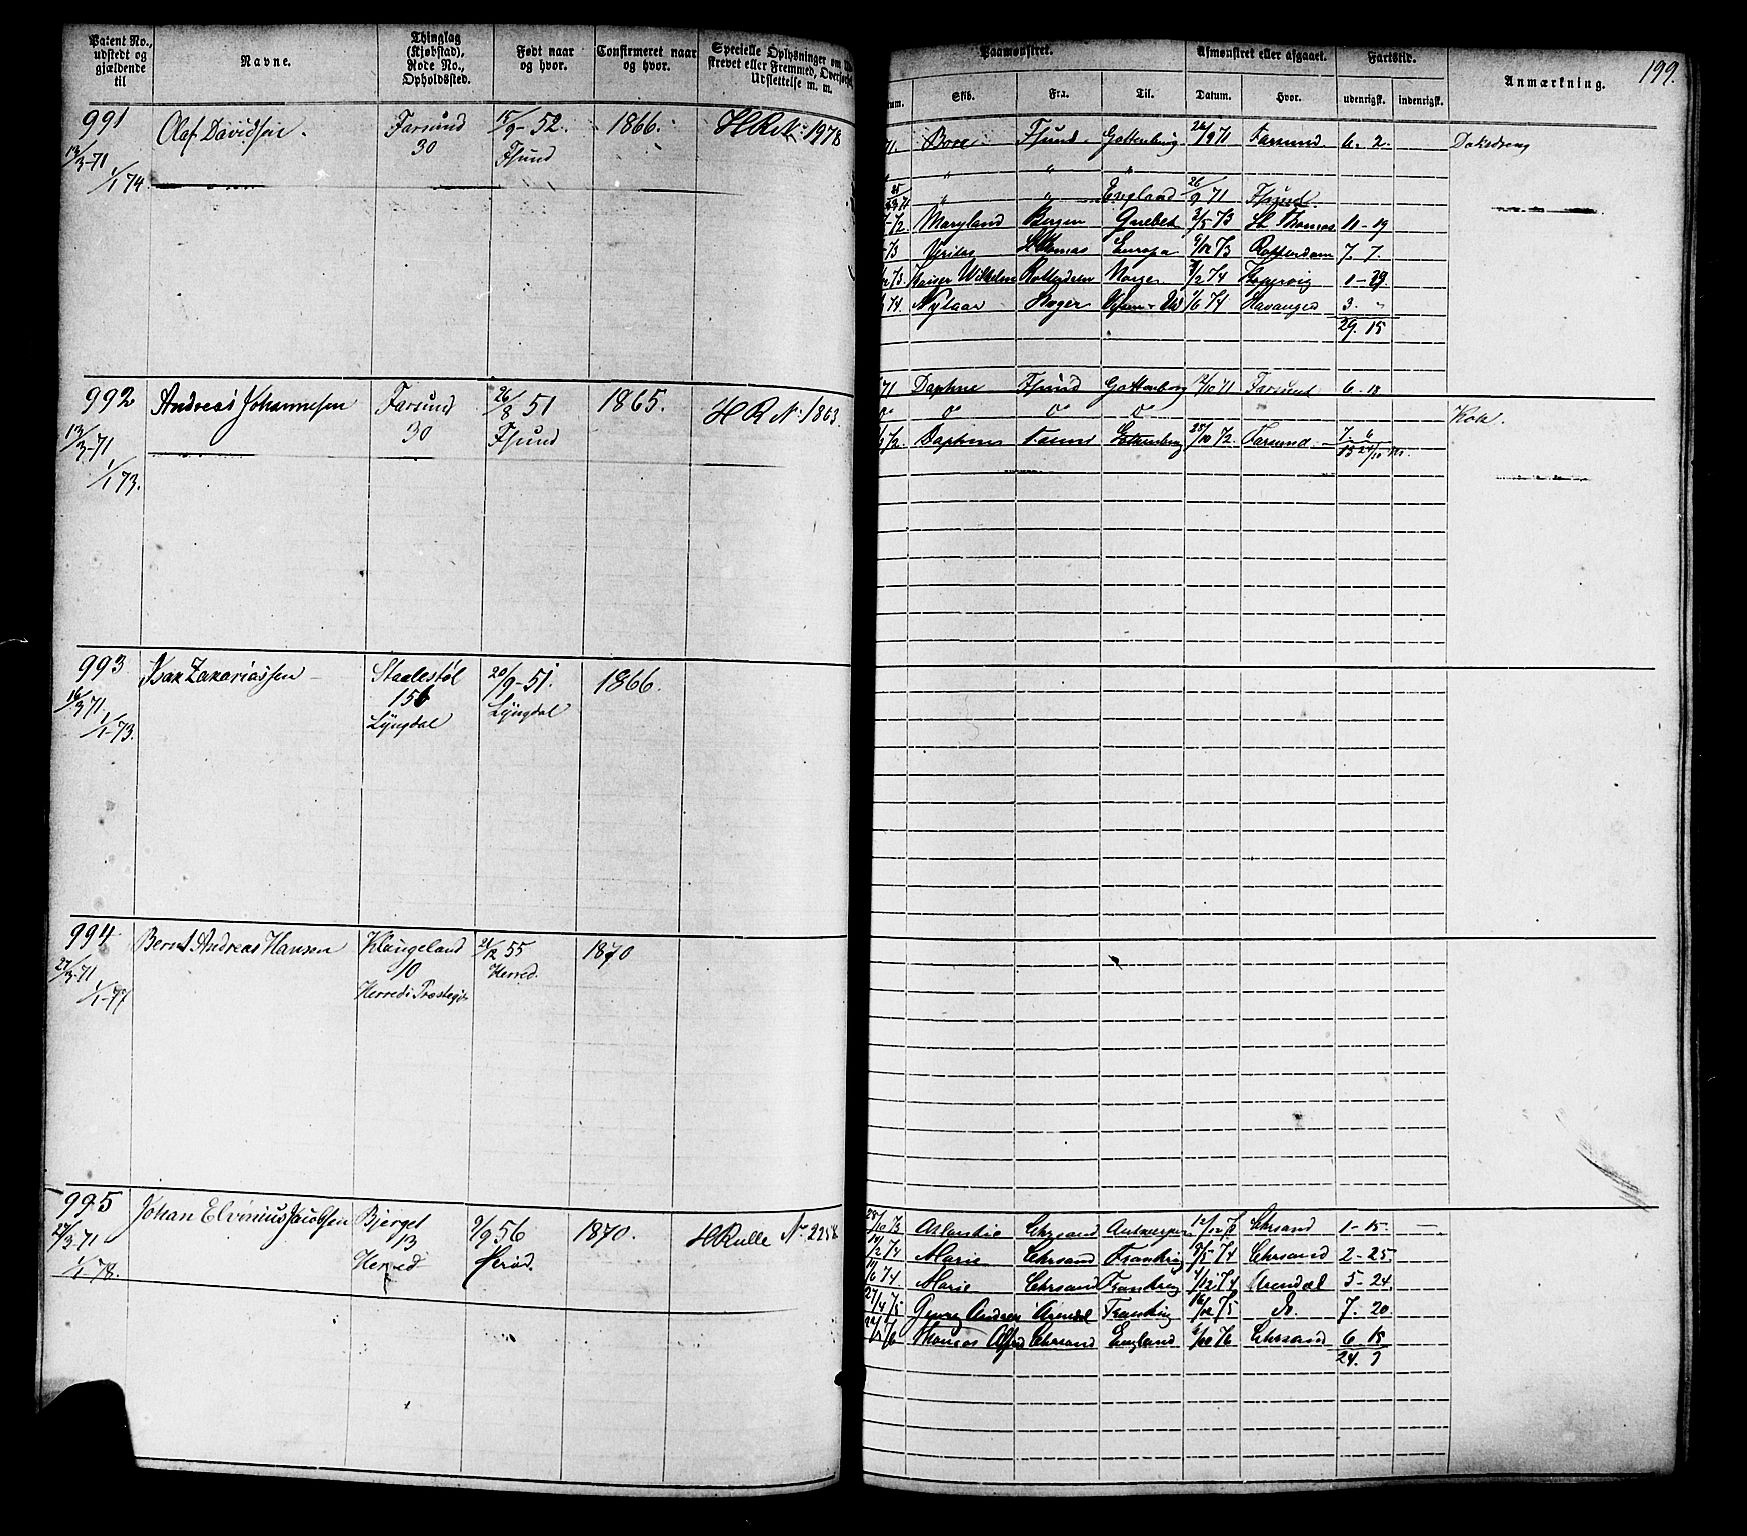 Patent No., udstedt og gjældende til
Navne.
Thinglag (Kjøbstad), Rode No., Opholdssted.
Født naar og hvor.
Confirmeret naar og hvor.
Specielle Oplysninger om
strevet eller Fremmed, Overført
Udslettelse m. m.
Paamønstret.
Afmønstret eller afgaaet.
Fartstid.
Anmærkning.
199.
Skib.
Fra.
Til.
Datum.
Hvor.
udenrigsk.
indenrigsk.
991
13/3-71
1/1 74.
Olaf Davidsen.
Farsund
30
15/9-52.
Fsund
1866.
H R N: 1978
71. Bore Fsund. Gottenburg 26/9 71 Farsund 6. 2. Dæksdreng
" " "
" " England 26/9 71 Fsund
72. Maryland Bergen Quebek 2/5 73 St Thomas 11-19
73 Veritas St Thomas Europa 9/12 73 Rotterdam 7. 7.
73. Kaiser Wilhelm Rotterdam Norge 7/2 74 1-29.
74. Nylaar 1/6 74 3. "
29. 15
992
13/3-71
1/1 73.
Andreas Johannesen
Farsund
30
26/8 51
Fsund
1865.
H R N: 1863.
71 Daphne Fsund Gottenborg 12/10 71 Farsund 6-18
do do do do
72. Daphne Fsund Gottenborg 25/10 72. Farsund 7 6 Kok.
993
16/3 71.
1/1-73.
Isak Zakariassen
Staalestøl
156
Lyngdal
20/9-51.
Lyngdal
1866.
994
27/3-71
1/1-77
Bernt Andreas Hansen
Klungeland
10
Herreds Præstegj
21/12 55
Herred.
1870
995
27/3-71
1/1 78.
Johan Elvinius Jacobsen
Bjerget
13
Herred
9/9 56
Herød.
1870.
H Rulle No 2258
28/10 73 Chrsand Antwerpen Chrsand 1-15-
14/2 74 Marie Chrsand Frankrig 8/5 74 Chrsand 2-25
11/6 74 Marie Chrsand Frankrig 4/12 74 Arendal 5-24
27/4 75 Georg Andreas Arendal Frankrig 16/12 75 do. 7-20
Thomas Alfred Chrsand England 6/10 76 Chrsand 6 18
24. 9